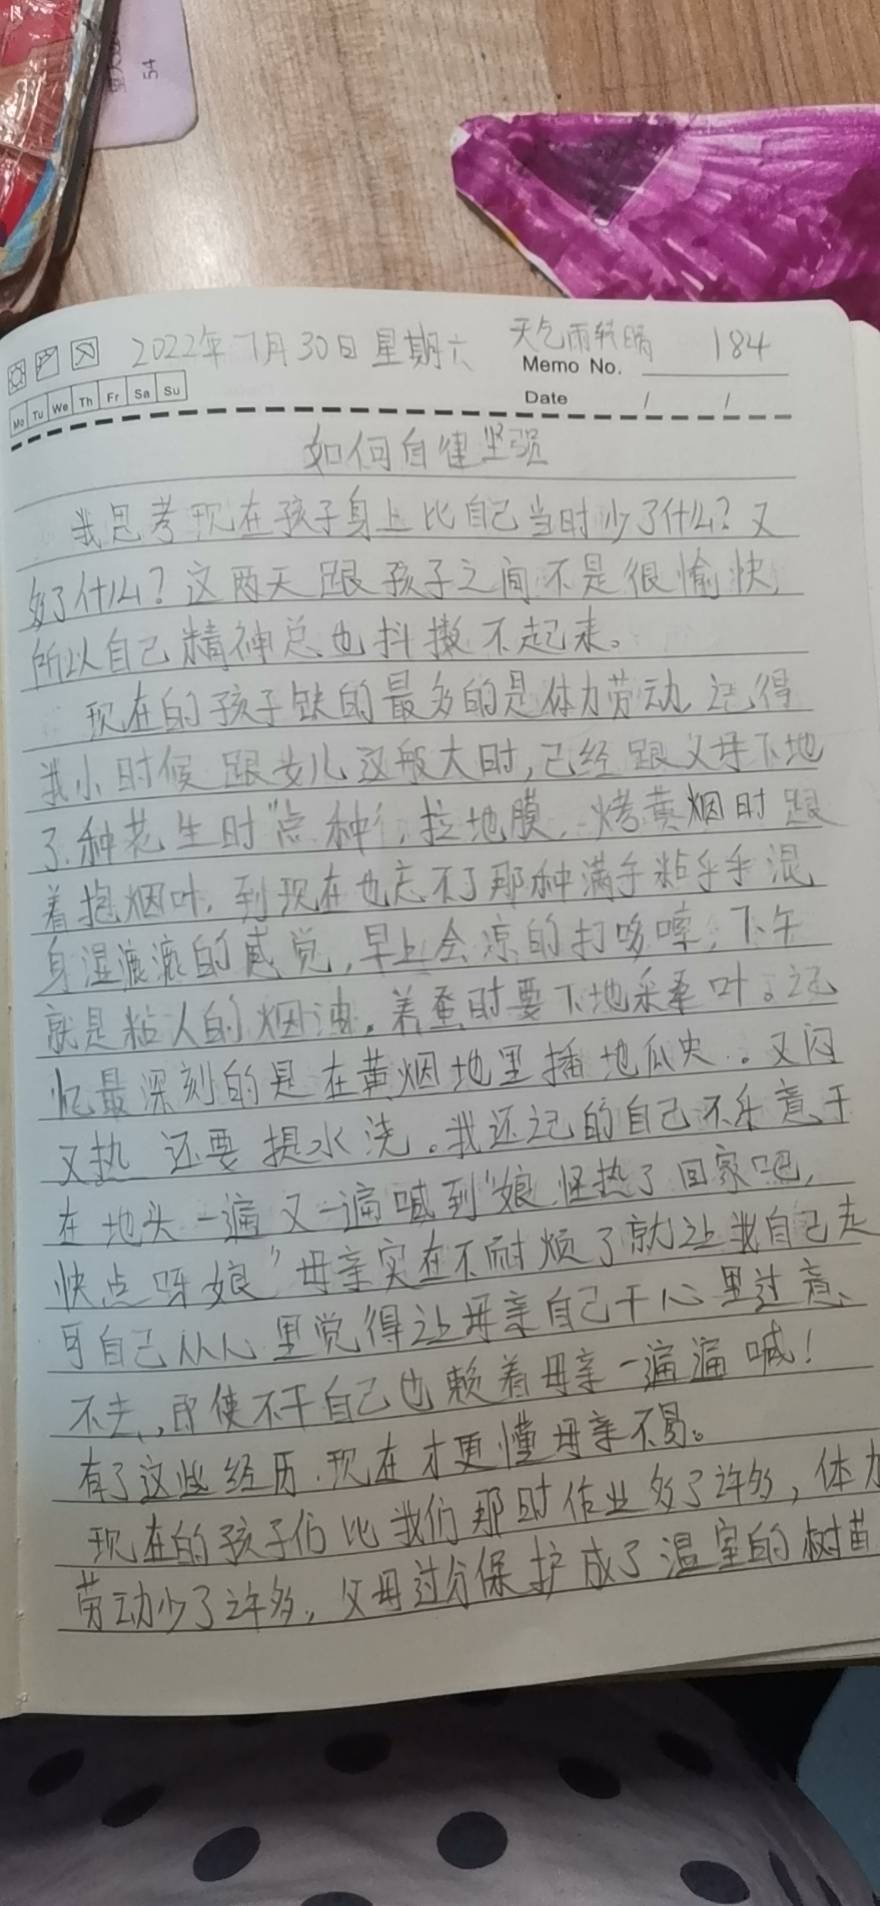 54
2022年7月30日星期六 天气雨转晴 184
Memo No.
Mo Tu We Th Fr Sa Su
Date / /
如何自律坚强
我思考现在孩子身上比自己当时少了什么?又
多了什么?这两天跟孩子之间不是很愉快,
所以自己精神总也抖擞不起来。
现在的孩子缺的最多的是体力劳动,记得
我小时候跟女儿这般大时,已经跟父母下地
了.种花生时"点种",拉地膜,烤黄烟时跟
着抱烟叶,到现在也忘不了那种满手粘乎乎混
身湿漉漉的感觉,早上会凉的打哆嗦,下午
就是粘人的烟油。养蚕时要下地采桑叶。记
忆最深刻的是在黄烟地里插地瓜央。又闷
又热 还要提水浇。我还记的自己不乐意干
在地头一遍又一遍喊到"娘,怪热了回家吧,
快点呀娘"母亲实在不耐烦了就让我自己走
可自己从心里觉得让母亲自己干心里过意
不去,,即使不干自己也赖着母亲一遍遍喊!
有了这些经历.现在才更懂母亲不易。
现在的孩子们比我们那时作业多了许多,体力
劳动少了许多,父母过分保护成了温室的树苗